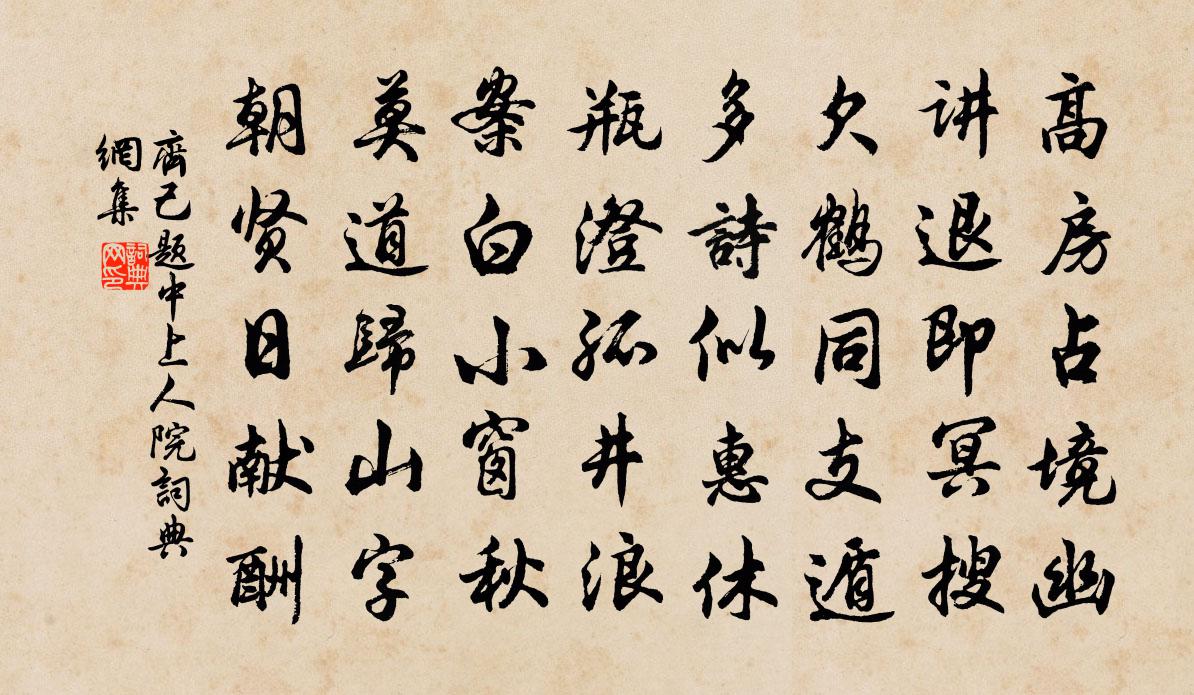 高房占境幽
讲退即冥搜
欠鹤同支遁
多詩似惠休
瓶澄孤井浪
案白小窗秋
莫道歸山字
朝贤日献酬
齊己题中上人院詞典
網集
詞典
网印